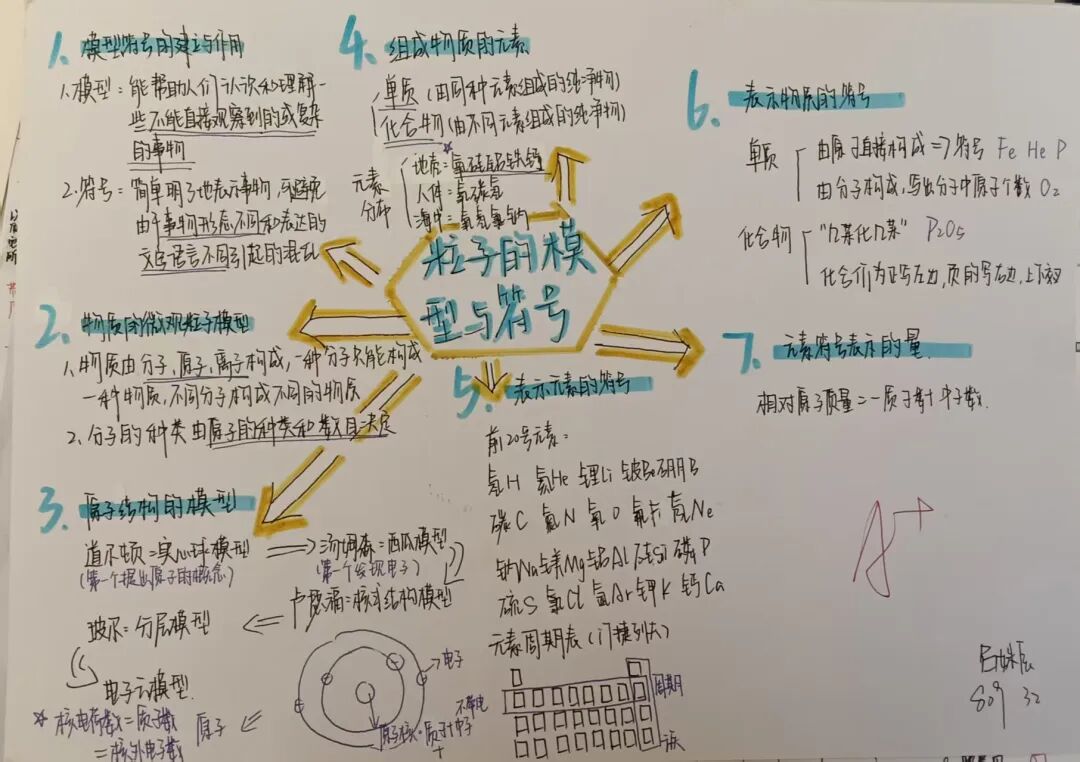 粒子的模
型与符号
1. 模型符号的建立与作用
1.模型：能帮助人们认识和理解一
些不能直接观察到的或复杂
的事物
2.符号：简单明了地表示事物，可避免
由于事物形态不同和表达的
文字语言不同引起的混乱
2. 物质的微观粒子模型
1.物质由分子、原子、离子构成，一种分子只能构成
一种物质，不同分子构成不同的物质
2.分子的种类由原子的种类和数目决定
3. 原子结构的模型
道尔顿：实心球模型 => 汤姆森：西瓜模型
(第一个提出原子的概念) (第一个发现电子)
卢瑟福：核式结构模型
玻尔：分层模型
电子云模型
* 核电荷数=质子数
=核外电子数
原子
电子
不带电
原子核：质子+中子
+
4. 组成物质的元素
单质(由同种元素组成的纯净物)
化合物(由不同元素组成的纯净物)
元素
分布
地壳：氧硅铝铁
人体：氧碳氢
海水：氧氢氯钠
5. 表示元素的符号
前20号元素：
氢H 氦He 锂Li 铍Be 硼B
碳C 氮N 氧O 氟F 氖Ne
钠Na 镁Mg 铝Al 硅Si 磷P
硫S 氯Cl 氩Ar 钾K 钙Ca
元素周期表(门捷列夫)
周期
族
6. 表示物质的符号
单质
由原子直接构成=>符号 Fe He P
由分子构成，写出分子中原子个数 O₂
化合物
"几某化几某" P₂O₅
化合价为正写左边，负的写右边，上下
7. 元素符号表示的量
相对原子质量=质子数+中子数.
A+
809 32